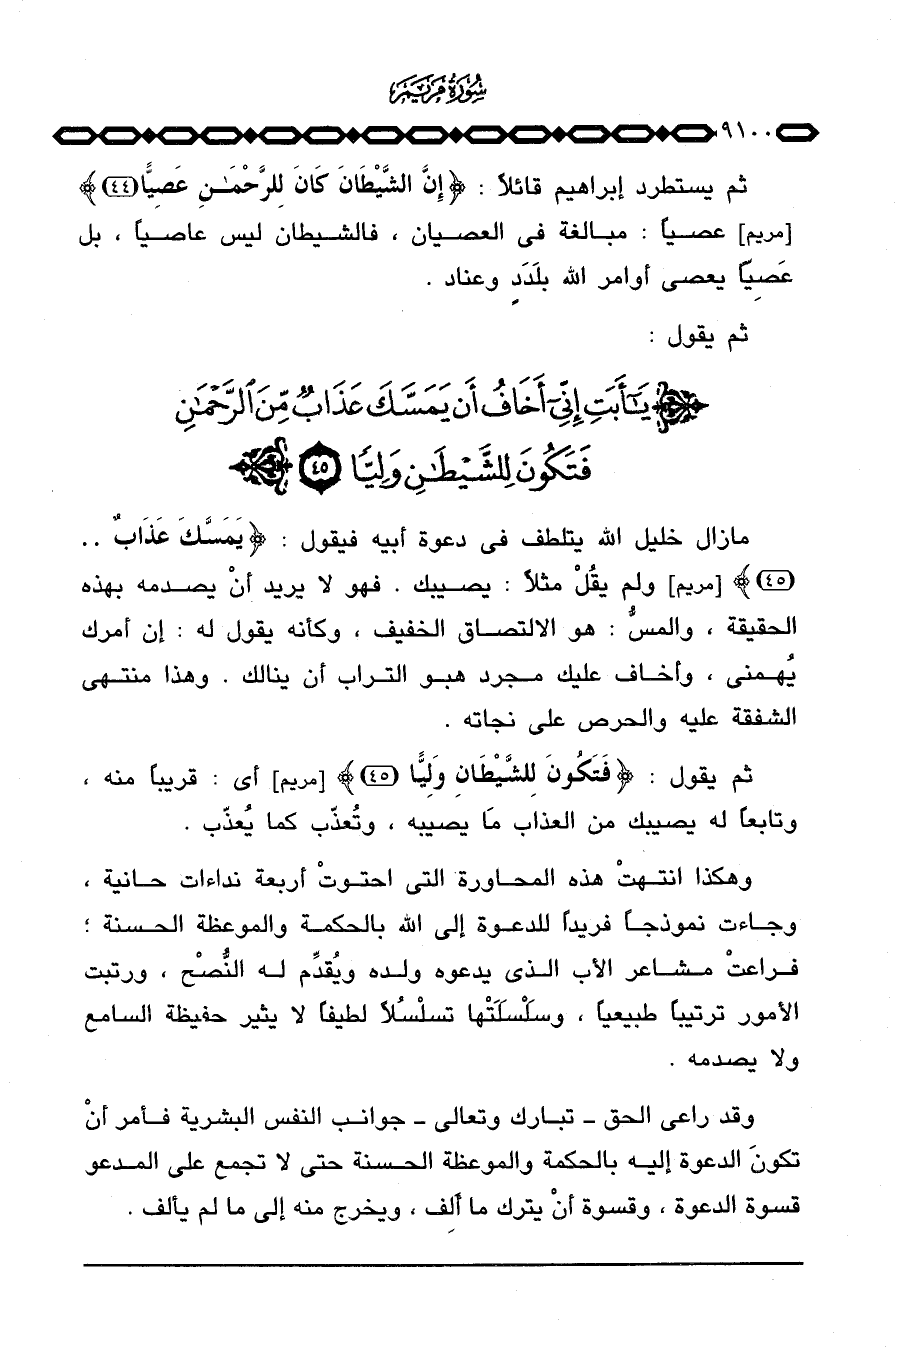 سُورَةُ مَرْيَمَ
٩١٠٠
ثم يستطرد إبراهيم قائلاً : ﴿ إِنَّ الشَّيْطَانَ كَانَ لِلرَّحْمَٰنِ عَصِيًّا (٤٤) ﴾
[مريم] عصياً : مبالغة فى العصيان ، فالشيطان ليس عاصياً ، بل
عَصِيّاً يعصى أوامر الله بلَدَدٍ وعناد .
ثم يقول :
﴿ يَٰٓأَبَتِ إِنِّىٓ أَخَافُ أَن يَمَسَّكَ عَذَابٌ مِّنَ ٱلرَّحْمَٰنِ
فَتَكُونَ لِلشَّيْطَٰنِ وَلِيًّا ٤٥ ﴾
مازال خليل الله يتلطف فى دعوة أبيه فيقول : ﴿ يَمَسَّكَ عَذَابٌ ..
(٤٥) ﴾ [مريم] ولم يقُلْ مثلاً : يصيبك . فهو لا يريد أنْ يصدمه بهذه
الحقيقة ، والمسُّ : هو الالتصاق الخفيف ، وكأنه يقول له : إن أمرك
يُهمنى ، وأخاف عليك مجرد هبو التراب أن ينالك . وهذا منتهى
الشفقة عليه والحرص على نجاته .
ثم يقول : ﴿ فَتَكُونَ لِلشَّيْطَانِ وَلِيًّا (٤٥) ﴾ [مريم] أى : قريباً منه ،
وتابعاً له يصيبك من العذاب مَا يصيبه ، وتُعذَّب كما يُعذَّب .
وهكذا انتهتْ هذه المحاورة التى احتوتْ أربعة نداءات حانية ،
وجاءت نموذجاً فريداً للدعوة إلى الله بالحكمة والموعظة الحسنة ؛
فراعتْ مشاعر الأب الذى يدعوه ولده ويُقدِّم له النُّصْح ، ورتبت
الأمور ترتيباً طبيعياً ، وسلْسلَتْها تسلْسُلاً لطيفاً لا يثير حفيظة السامع
ولا يصدمه .
وقد راعى الحق - تبارك وتعالى - جوانب النفس البشرية فأمر أنْ
تكونَ الدعوة إليه بالحكمة والموعظة الحسنة حتى لا تجمع على المدعو
قسوة الدعوة ، وقسوة أنْ يترك ما أَلِف ، ويخرج منه إلى ما لم يألف .